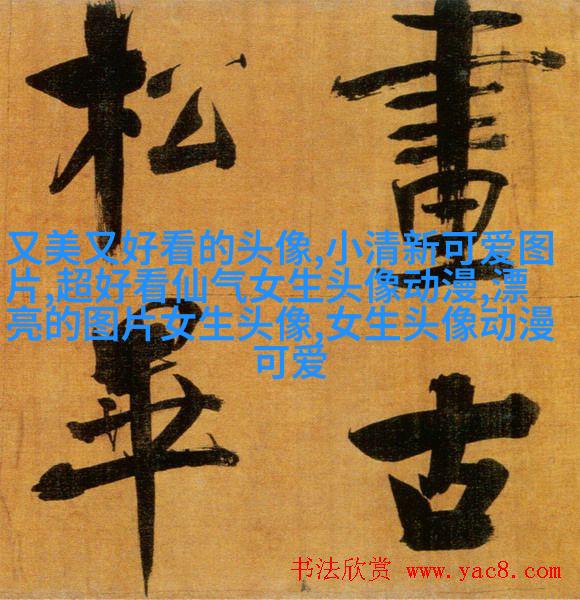 畫古
松畢
又美又好看的头像,小清新可爱图
片,超好看仙气女生头像动漫,漂
亮的图片女生头像,女生头像动漫
可爱
书法欣赏 www.yac8.com